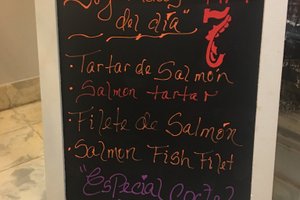 del día"
7
• Tartar de Salmón
• Salmon tartar
Filete de Salmón
• Salmon Fish Filet
"Especial Coctel